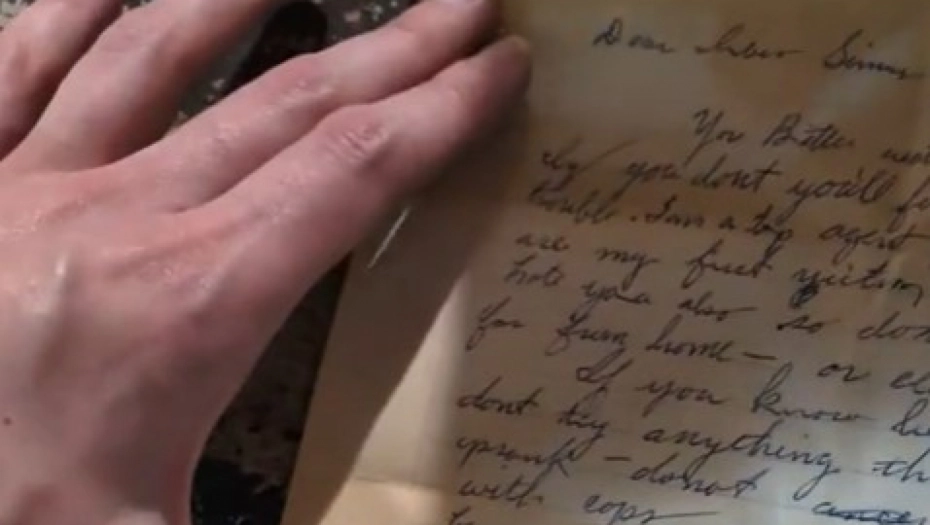 Dear
You Better
you dont you'll
trouble. I am a top agent
are my first victim
hate you also so don
far from home — or el
If you know
dont try anything th
prank — do not
with cops